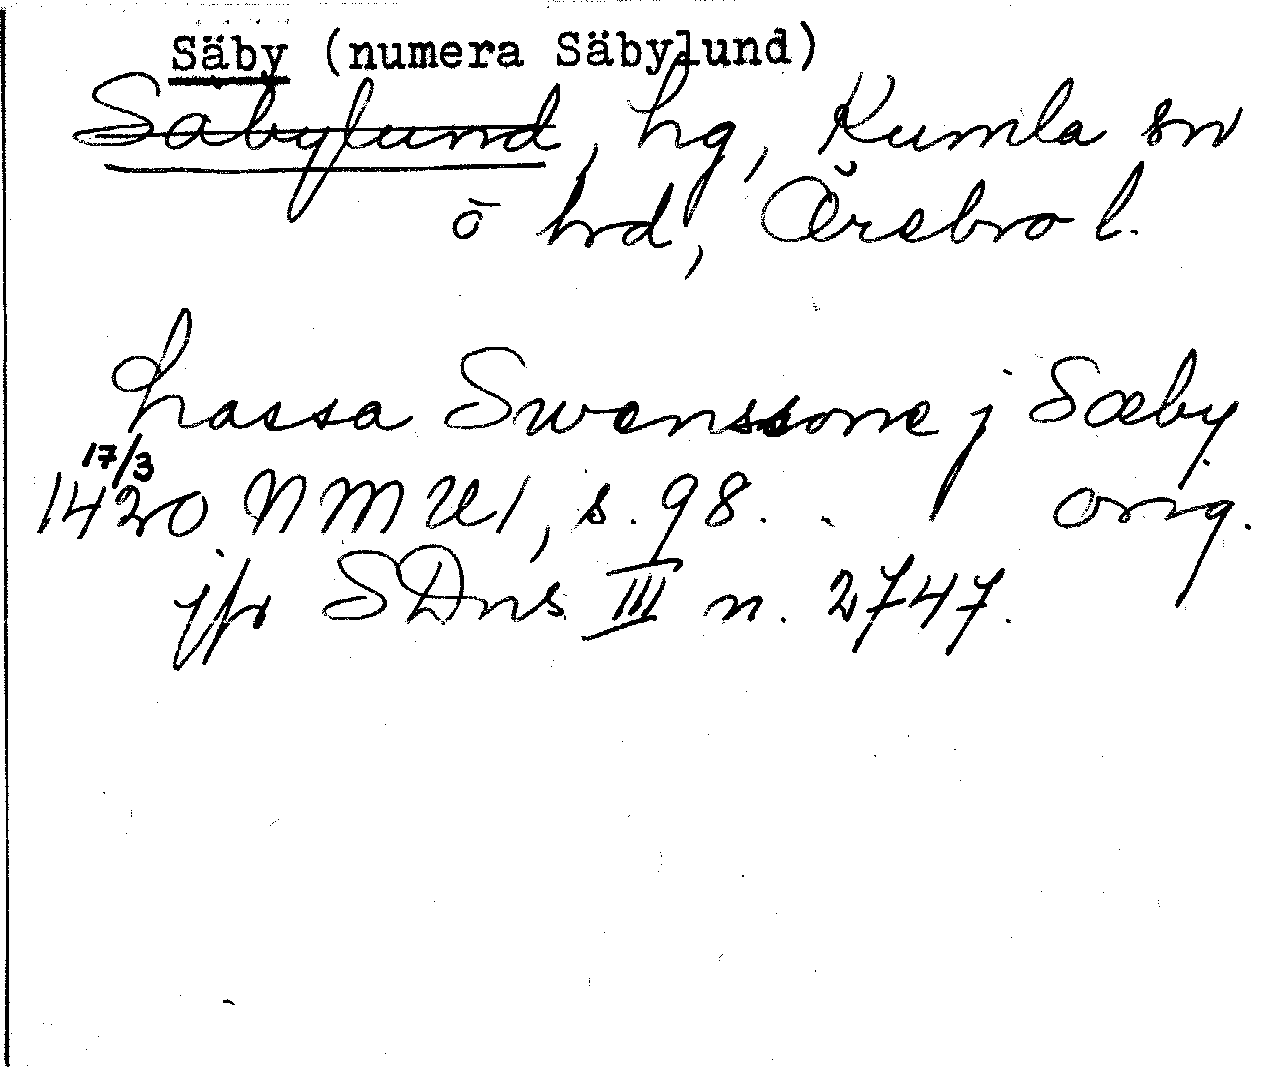 Säby (numera Säbylund)
Säbylund, hg, Kumla sn
ö hrd, Örebro l.
Lassa Swenssone j Sæby
17/3
1420 NMU1, s. 98. orig.
jfr SDns III n. 2747.